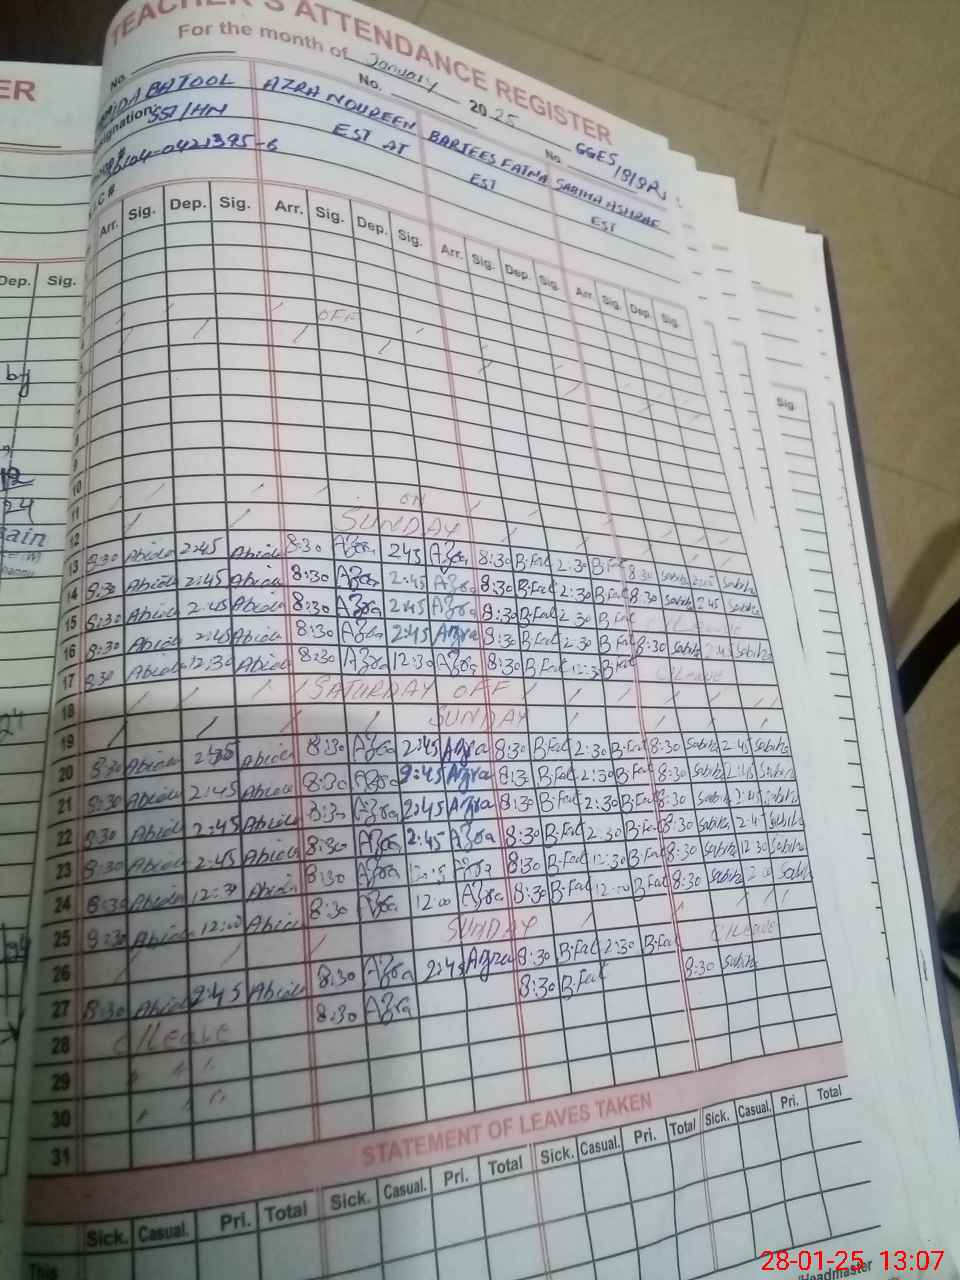 TEACHER'S ATTENDANCE REGISTER
For the month of January 2025
No. No. No. GGES
BATOOL AZRA NOUREEN BARJEES FATMA SABIHA ASHRAF
SST/HN EST AT EST EST
Arr. Sig. Dep. Sig. Arr. Sig. Dep. Sig. Arr. Sig. Dep. Sig. Arr. Sig. Dep. Sig.
OFF
10
11
12 SUNDAY
13 8:30 Abida 2:45 Abida 8:30 Azra 2:45 Azra 8:30 B.Fat 2:30 B.Fat 8:30 Sabiha Sabiha
14 8:30 Abida 2:45 Abida 8:30 Azra 2:45 Azra 8:30 B.Fat 2:30 B.Fat 8:30 Sabiha 2:45 Sabiha
15 8:30 Abida 2:45 Abida 8:30 Azra 2:45 Azra 8:30 B.Fat 2:30 B.Fat C/Leave
16 8:30 Abida 2:45 Abida 8:30 Azra 2:45 Azra 8:30 B.Fat 2:30 B.Fat 8:30 Sabiha 2:45 Sabiha
17 8:30 Abida 12:30 Abida 8:30 Azra 12:30 Azra 8:30 B.Fat 12:30 B.Fat C/Leave
18 SATURDAY OFF
19 SUNDAY
20 8:30 Abida 2:45 Abida 8:30 Azra 2:45 Azra 8:30 B.Fat 2:30 B.Fat 8:30 Sabiha 2:45 Sabiha
21 8:30 Abida 2:45 Abida 8:30 Azra 2:45 Azra 8:30 B.Fat 2:30 B.Fat 8:30 Sabiha 2:45 Sabiha
22 8:30 Abida 2:45 Abida 8:30 Azra 2:45 Azra 8:30 B.Fat 2:30 B.Fat 8:30 Sabiha 2:45 Sabiha
23 8:30 Abida 2:45 Abida 8:30 Azra 2:45 Azra 8:30 B.Fat 2:30 B.Fat 8:30 Sabiha 2:45 Sabiha
24 8:30 Abida 12:30 Abida 8:30 Azra Azra 8:30 B.Fat 12:30 B.Fat 8:30 Sabiha 12:30 Sabiha
25 8:30 Abida 12:00 Abida 8:30 Azra 12:00 Azra 8:30 B.Fat 12:00 B.Fat 8:30 Sabiha Sabiha
26 SUNDAY
27 8:30 Abida 2:45 Abida 8:30 Azra 2:45 Azra 8:30 B.Fat 2:30 B.Fat C/Leave
28 C/Leave 8:30 Azra 8:30 B.Fat 8:30 Sabiha
29
30
31
STATEMENT OF LEAVES TAKEN
Sick. Casual. Pri. Total Sick. Casual. Pri. Total Sick. Casual. Pri. Total Sick. Casual. Pri. Total
This
/Headmaster
28-01-25 13:07
ER
Dep. Sig.
by
Sig.